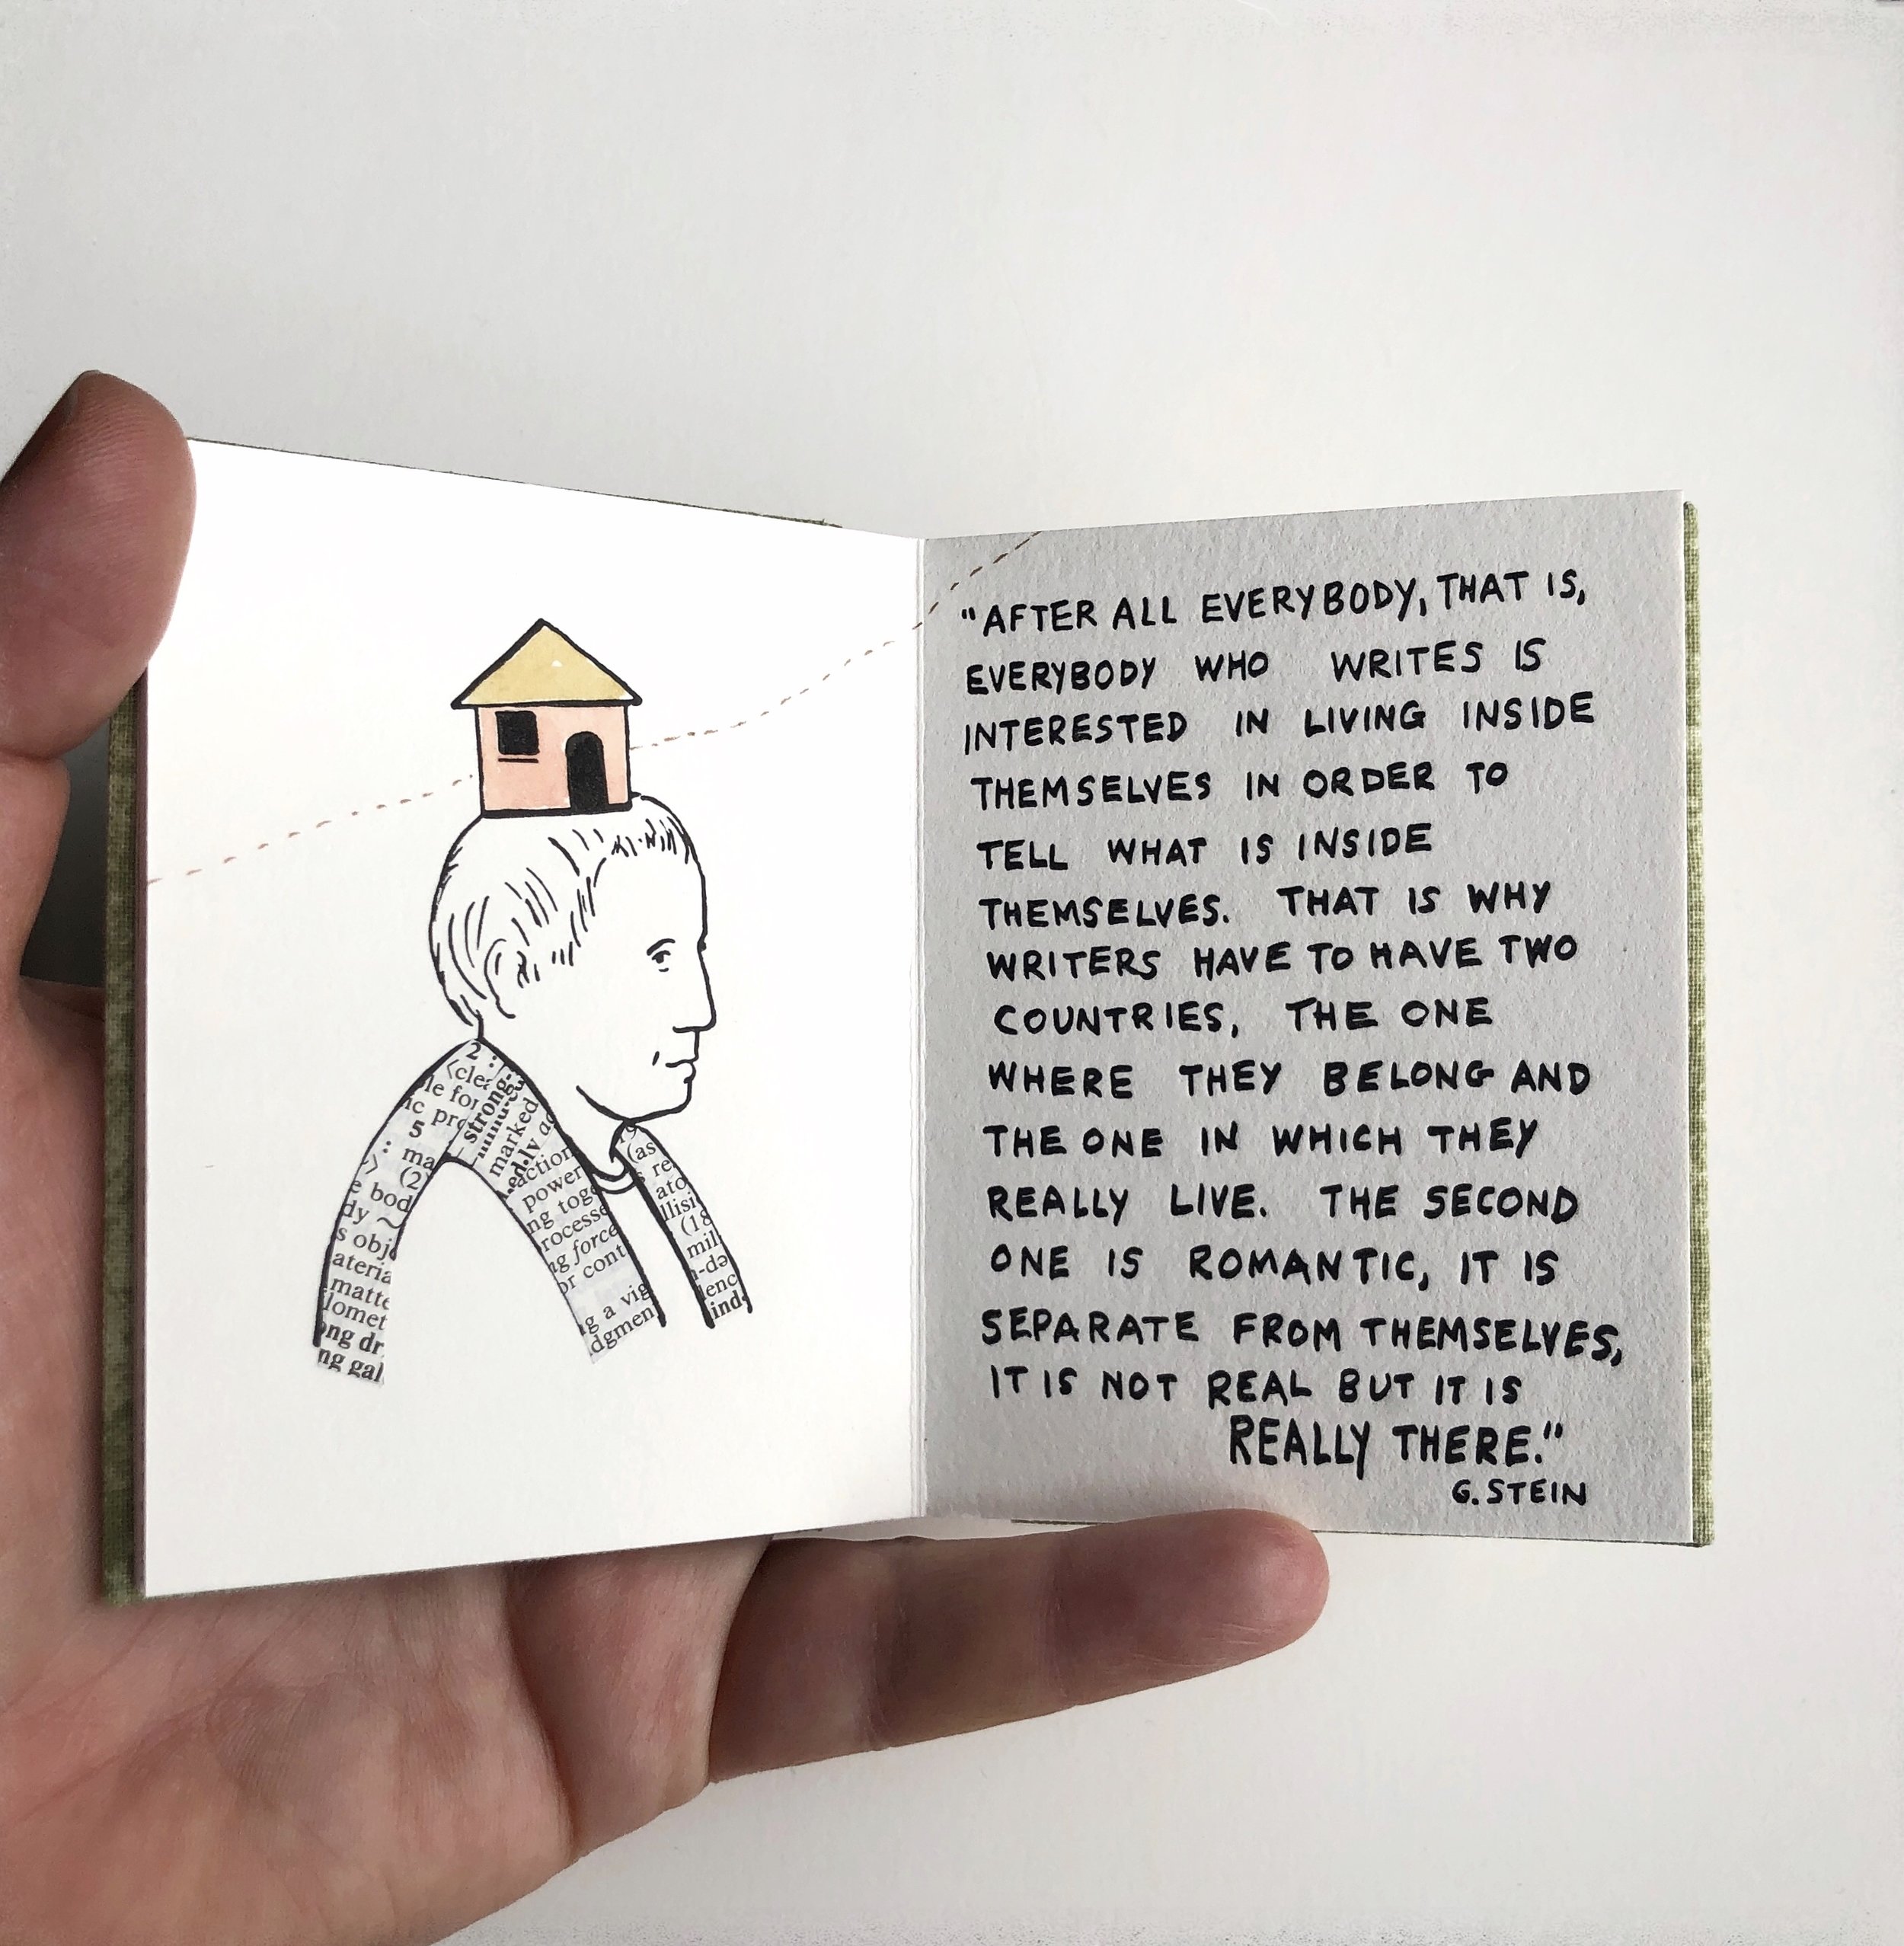 2 :
<clea
le for
ic pro
5
: ma
(2)
e bod
dy ~
s obje
ateria
matte
lomet
ong dr
ng gal
strong-
marked
ed·ly ac
action
power
ng toge
rocesse
ng force
or cont
ng a vig
dgmen
(as
s re
ato
llisi
(18
mil
n-də
lenc
ind
"AFTER ALL EVERYBODY, THAT IS,
EVERYBODY WHO WRITES IS
INTERESTED IN LIVING INSIDE
THEMSELVES IN ORDER TO
TELL WHAT IS INSIDE
THEMSELVES. THAT IS WHY
WRITERS HAVE TO HAVE TWO
COUNTRIES, THE ONE
WHERE THEY BELONG AND
THE ONE IN WHICH THEY
REALLY LIVE. THE SECOND
ONE IS ROMANTIC, IT IS
SEPARATE FROM THEMSELVES,
IT IS NOT REAL BUT IT IS
REALLY THERE."
G. STEIN